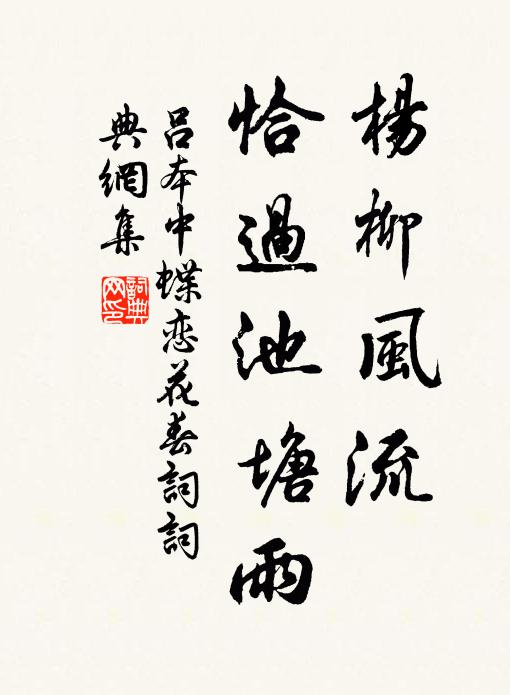 楊柳風流
恰過池塘雨
呂本中蝶恋花春詞詞
典網集
詞典
网印